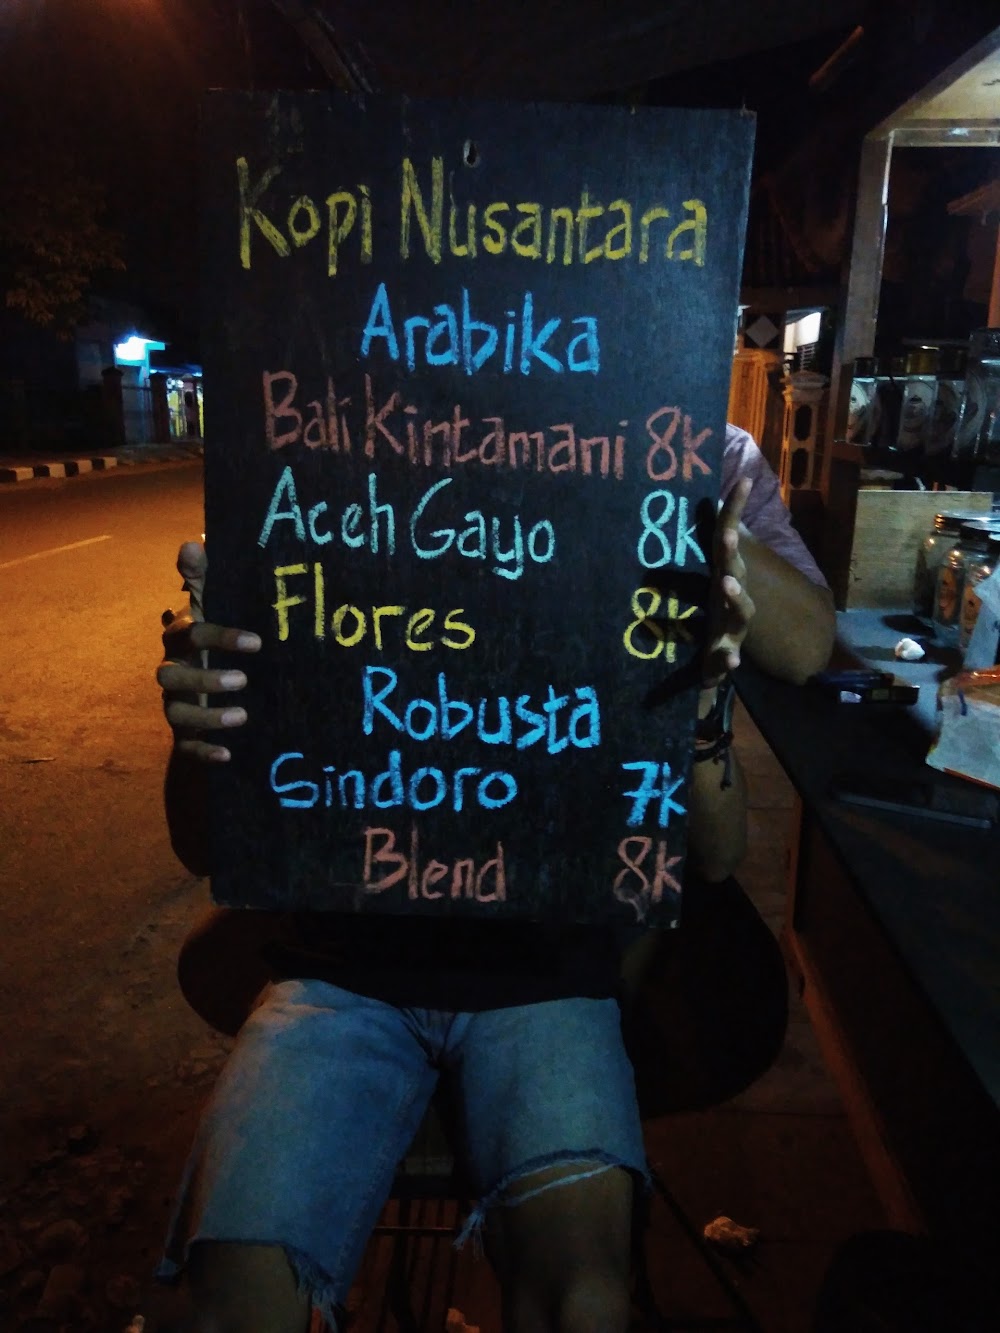 Kopi Nusantara
Arabika
Bali Kintamani 8k
Aceh Gayo 8k
Flores 8k
Robusta
Sindoro 7k
Blend 8k